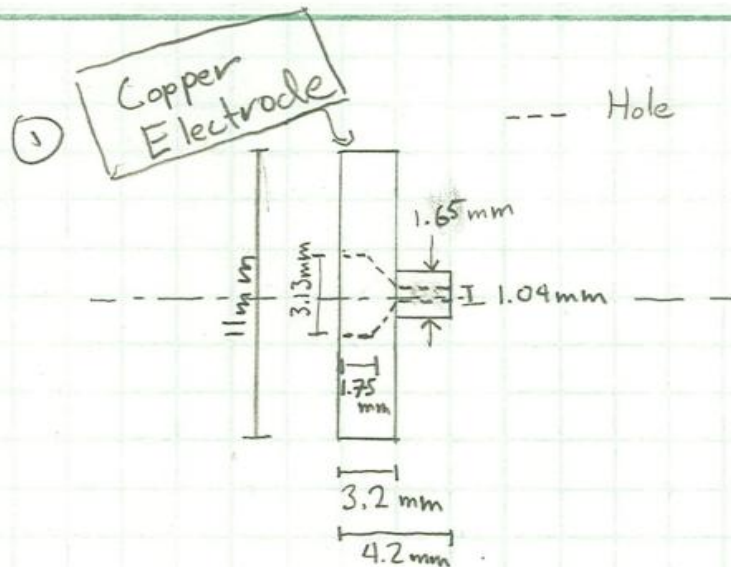 Copper
Electrode
①
--- Hole
1.65mm
3.13mm
11mm
1.04mm
1.75
mm
3.2 mm
4.2mm